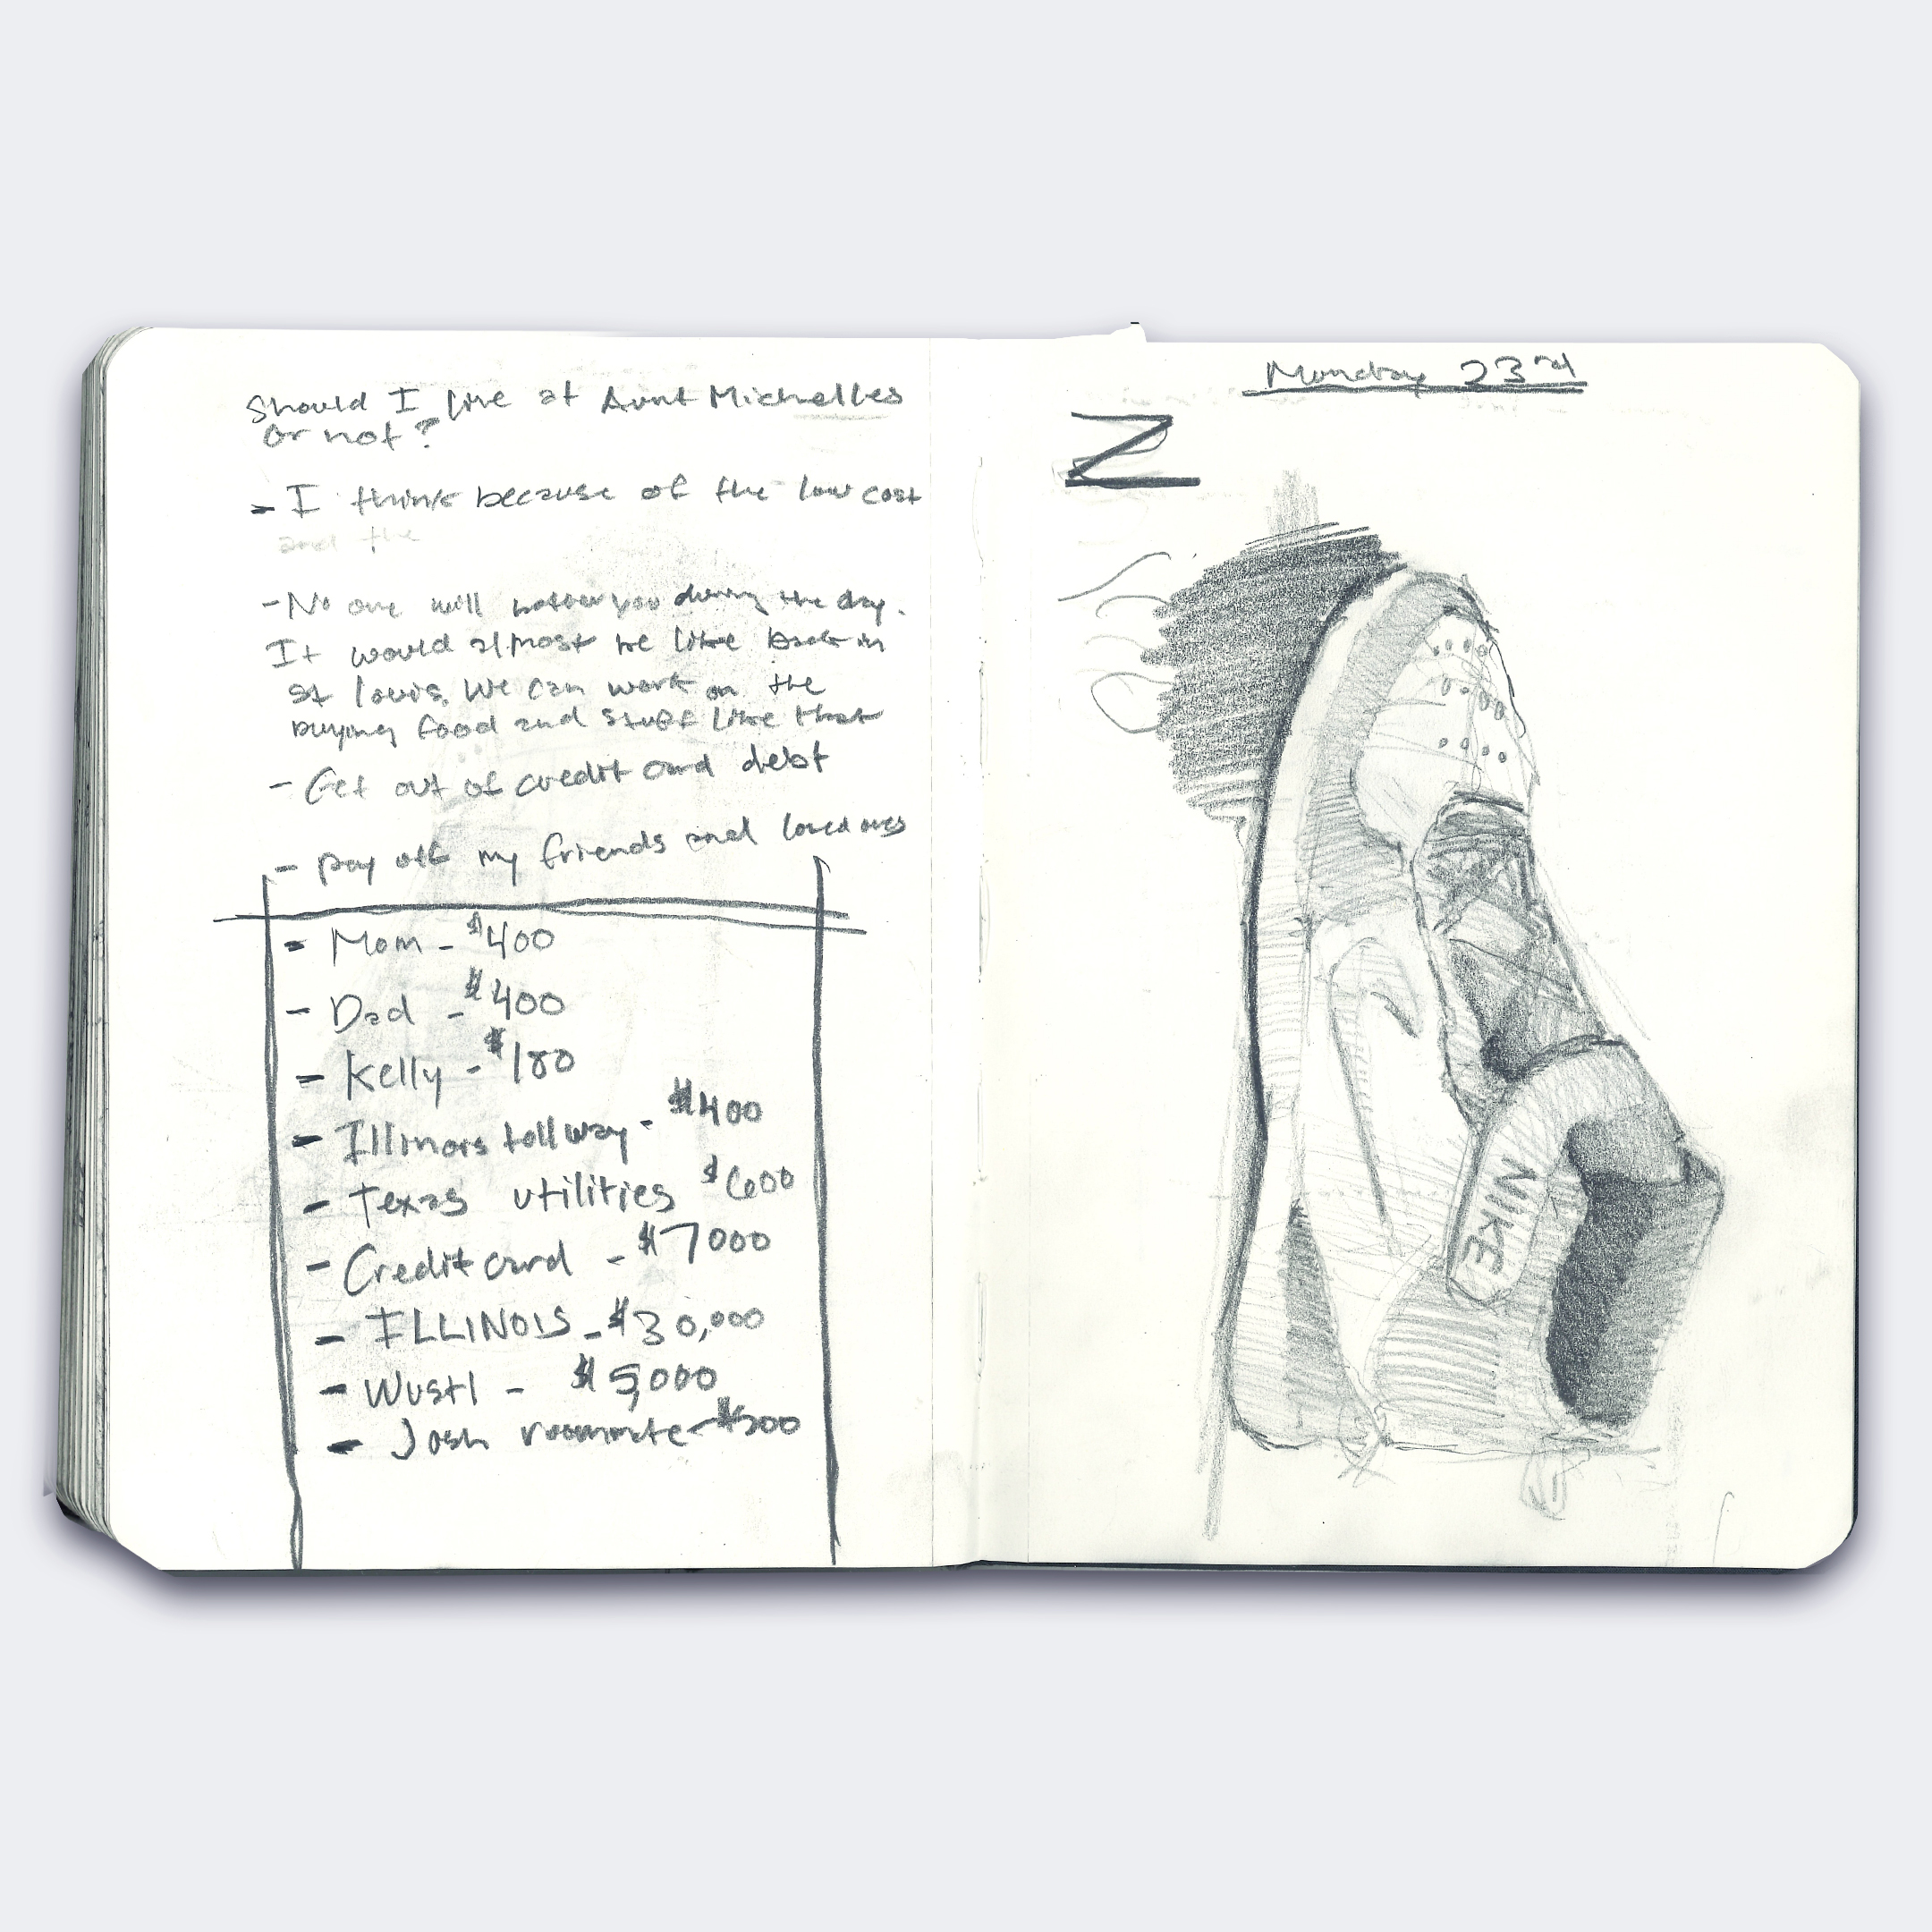 Should I live at Aunt Michelles
or not?
- I think because of the low cost
and the
- No one will bother you during the day.
It would almost be like back in
St louis. We can work on the
buying food and stuff like that
- Get out of credit card debt
- pay off my friends and loved ones
- Mom - $400
- Dad - $400
- Kelly - $180
- Illinois tollway - $400
- Texas utilities $600
- Credit card - $7000
- ILLINOIS - $30,000
- Wustl - $5,000
- Josh roommate - $300
Monday 23rd
N
NIKE